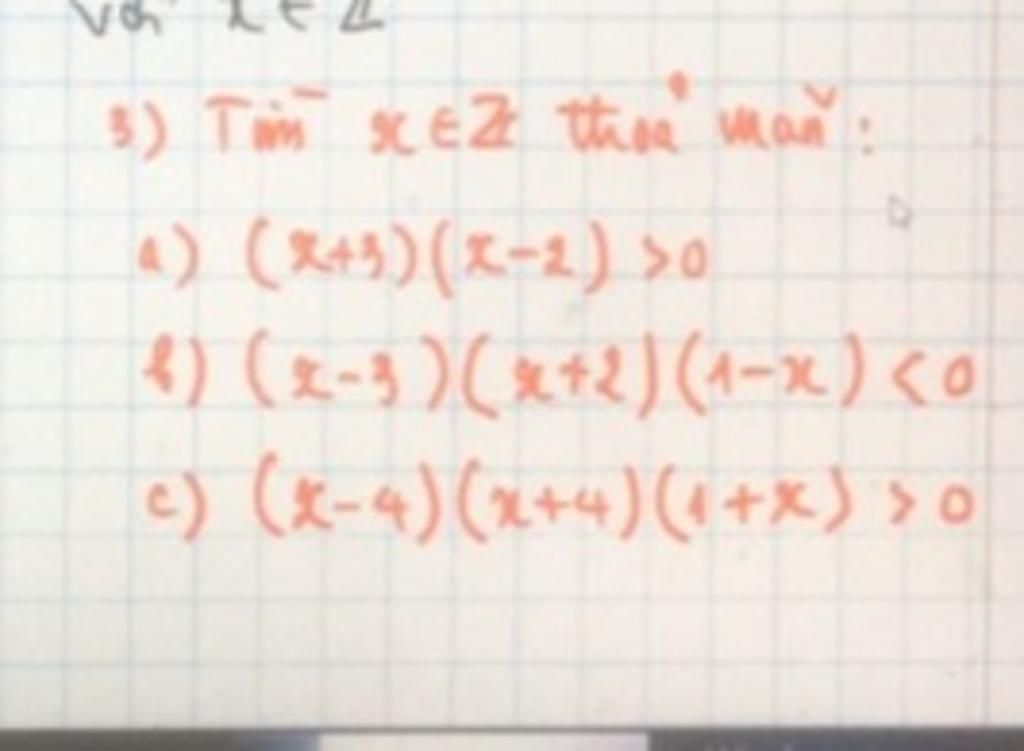 với x ∈ ℤ
3) Tìm x ∈ ℤ thoả mãn :
a) (x+3)(x-2) >0
b) (x-3)(x+2)(1-x) < 0
c) (x-4)(x+4)(1+x) > 0